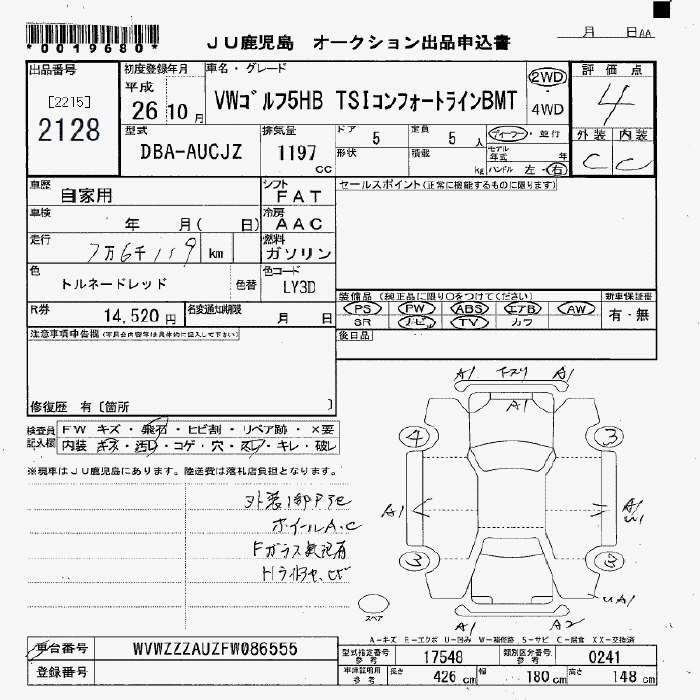 *0019680*
JU鹿児島 オークション出品申込書
月 日AA
出品番号
[2215]
2128
初度登録年月
平成
26 10 月
車名・グレード
VWゴルフ5HB TSIコンフォートラインBMT
2WD
4WD
評価点
4
型式
DBA-AUCJZ
排気量
1197
cc
ドア 5
定員 5 人
ディーラー・並行
形状
積載 kg
モデル年式 年
ハンドル 左・右
外装 内装
C C
車歴
自家用
シフト
FAT
セールスポイント(正常に機能するものに限ります)
車検
年 月( 日)
冷房
AAC
走行
7万6千119 km
燃料
ガソリン
色
トルネードレッド
色替
色コード
LY3D
装備品(純正品に限り○をつけてください)
PS PW ABS エアB AW
SR ナビ TV カワ
新車保証書
有・無
R券
14,520 円
名変通知期限
月 日
後日品
注意事項申告欄
修復歴 有〔箇所 〕
検査員記入欄
FW キズ・飛石・ヒビ割・リペア跡・×要
内装 キズ・汚レ・コゲ・穴・スレ・キレ・破レ
※現車はJU鹿児島にあります。陸送費は落札店負担となります。
ホイールA.C
A1 A1
A1
4 3
A1 A1
3 3
A1 A2
スペア
A-キズ E-エクボ U-凹み W-補修跡 S-サビ C-腐食 XX-交換済
車台番号
WVWZZZAUZFW086555
登録番号
型式指定番号 参考
17548
類別区分番号 参考
0241
車庫証明用 参考
長さ 426 cm
幅 180 cm
高さ 148 cm